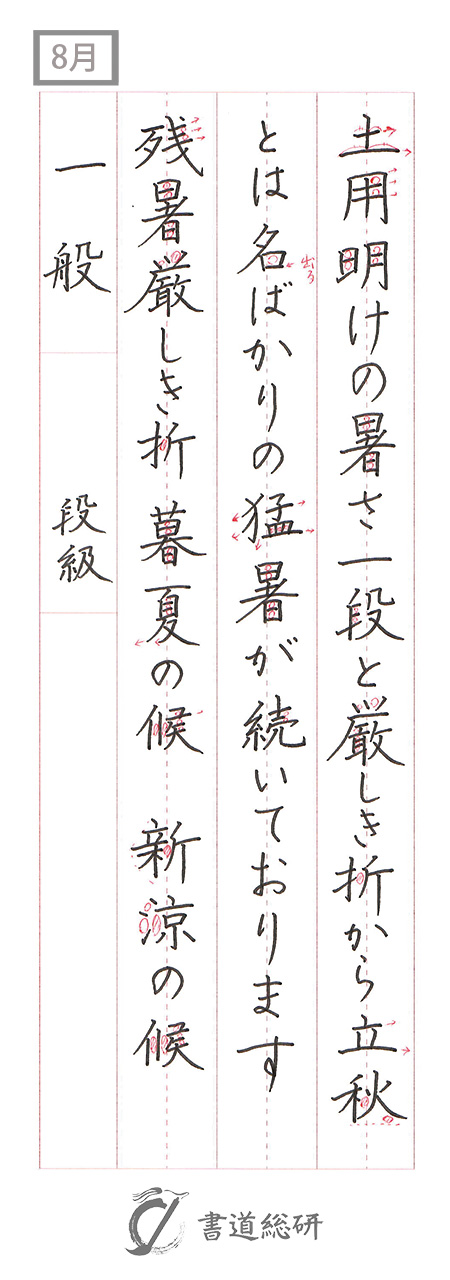 8月
土用明けの暑さ一段と厳しき折から立秋
とは名ばかりの猛暑が続いております
出る
残暑厳しき折 暮夏の候 新涼の候
一般 段級
書道総研